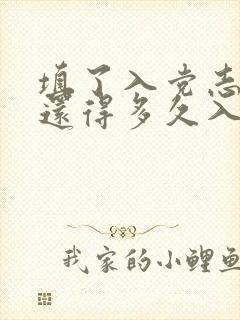 填了入党志
还得多久入
我家的小鲤鱼